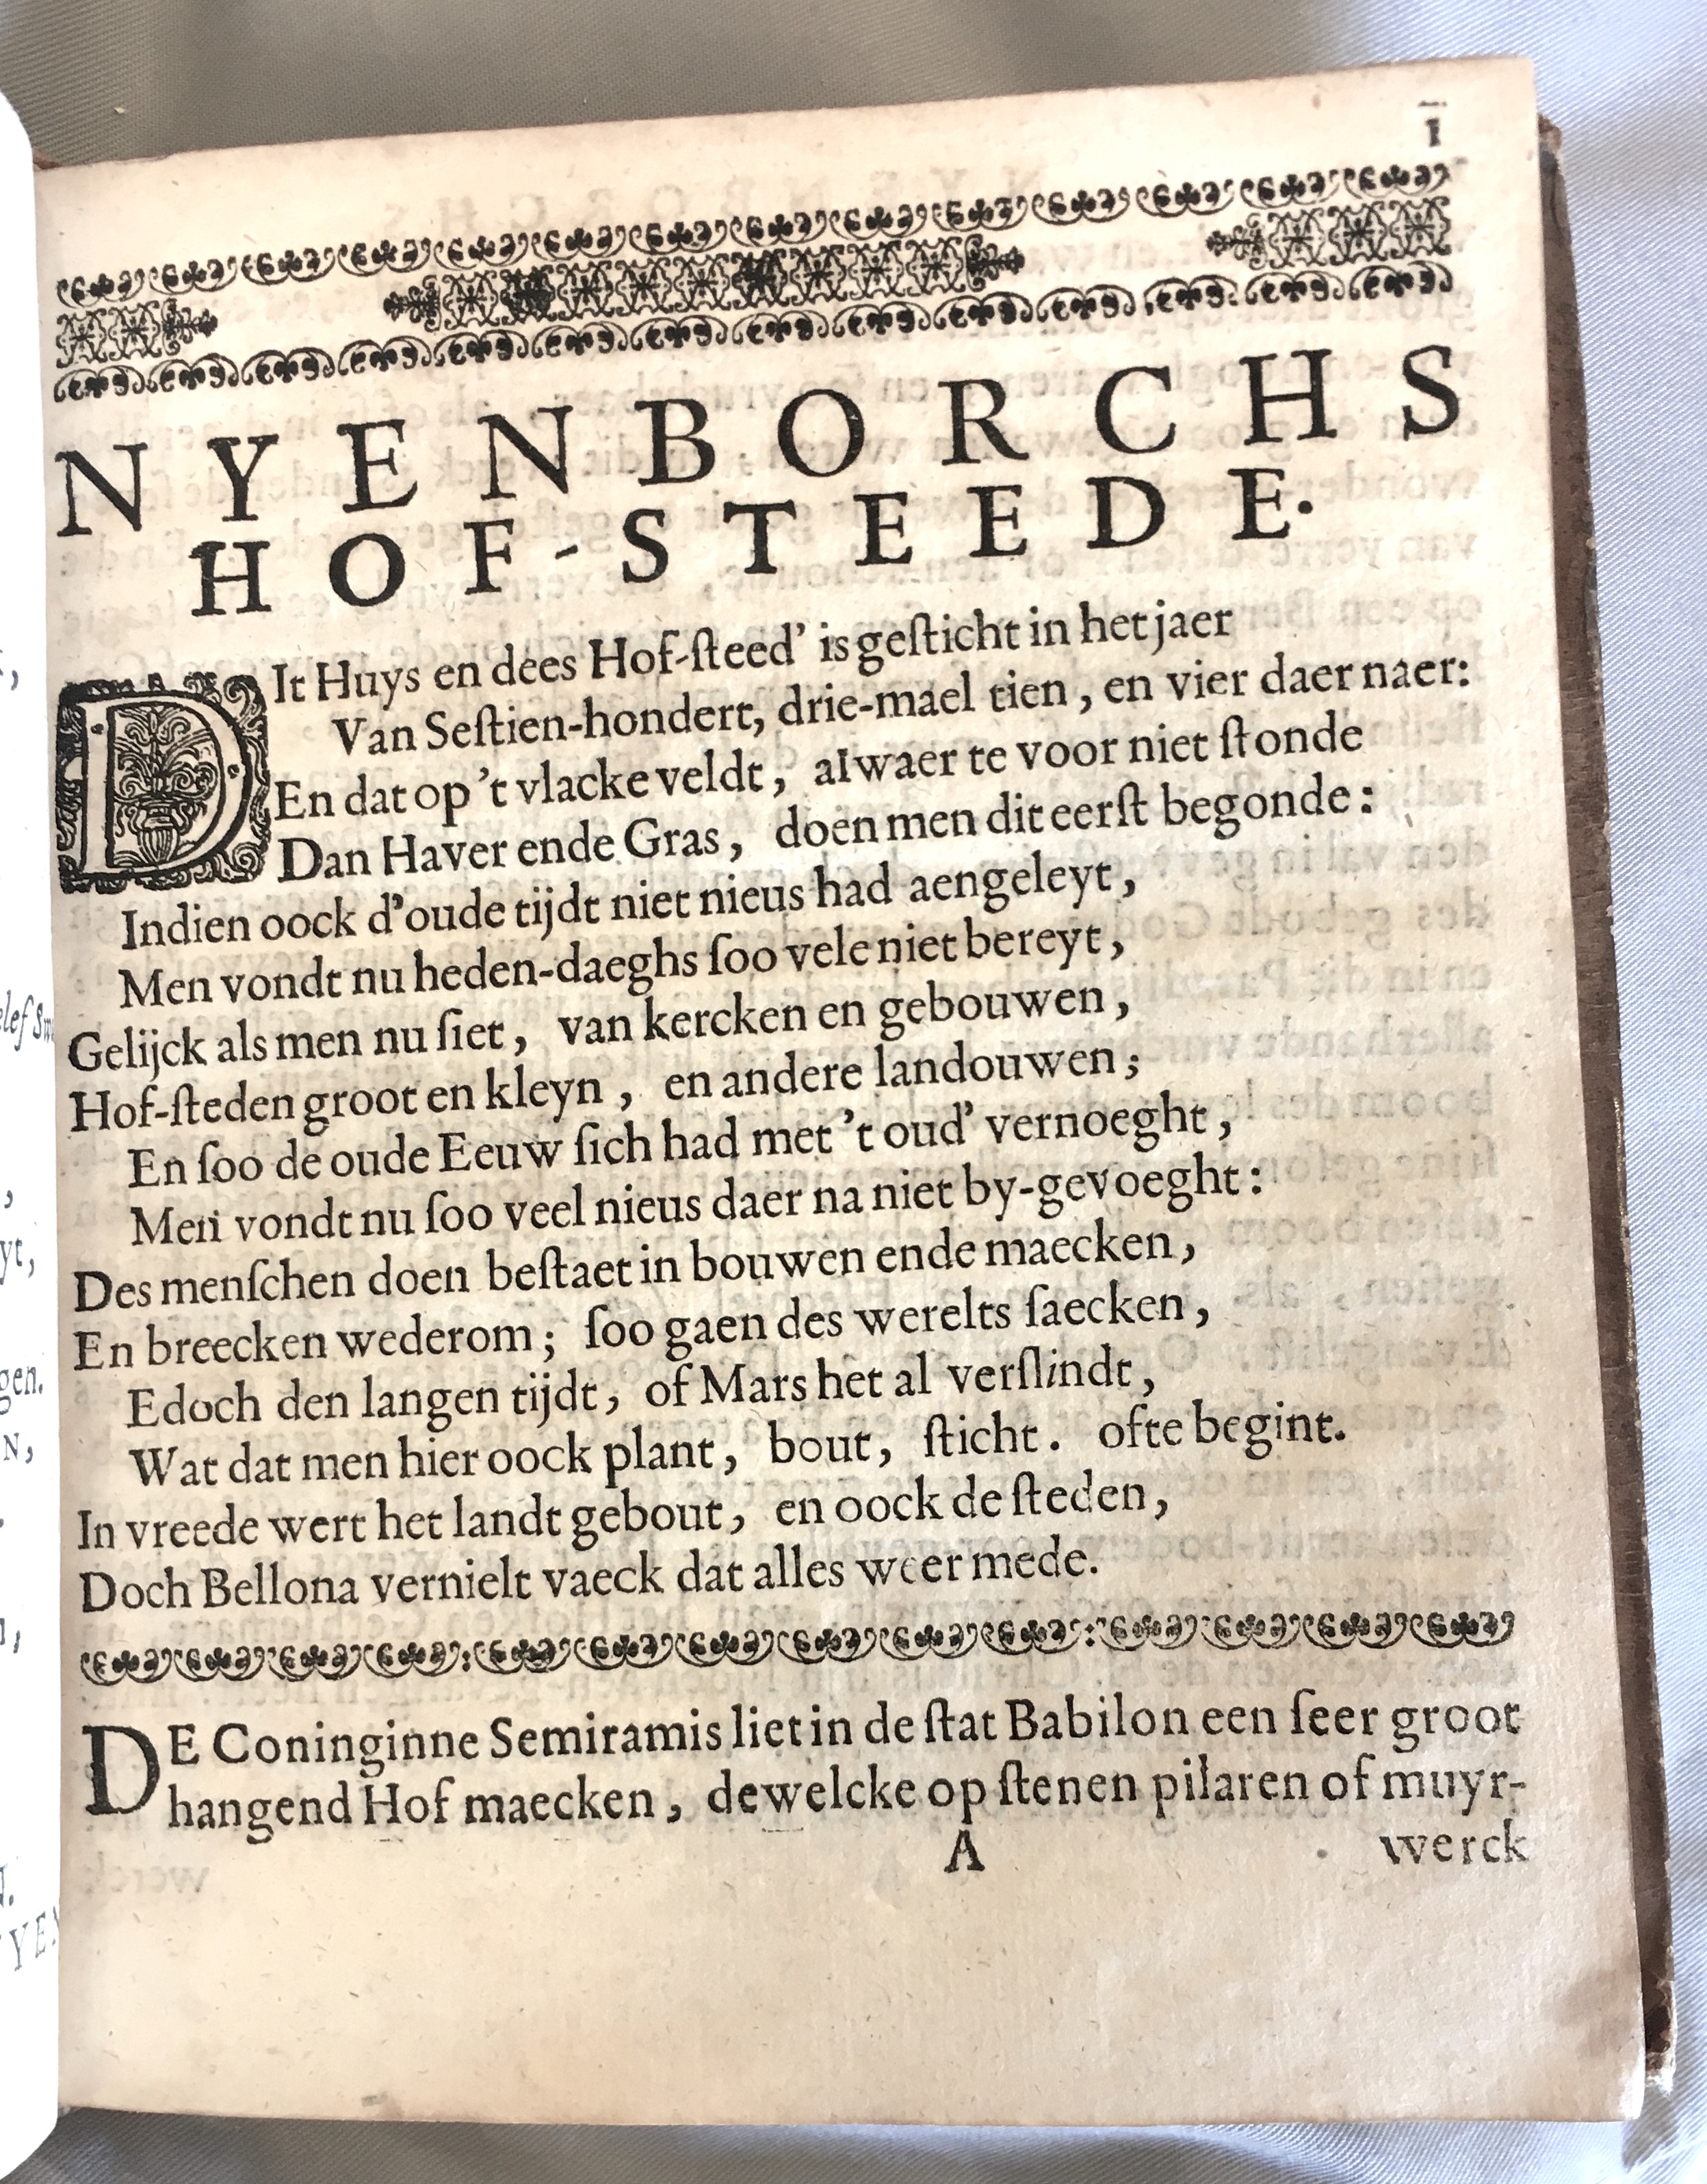 1
NYENBORCHS
HOF-STEEDE.
DIt Huys en dees Hof-ſteed’ is geſticht in het jaer
Van Seſtien-hondert, drie-mael tien, en vier daer naer:
En dat op ’t vlacke veldt, alwaer te voor niet ſtonde
Dan Haver ende Gras, doen men dit eerſt begonde:
Indien oock d’oude tijdt niet nieus had aengeleyt,
Men vondt nu heden-daeghs ſoo vele niet bereyt,
Gelijck als men nu ſiet, van kercken en gebouwen,
Hof-ſteden groot en kleyn, en andere landouwen;
En ſoo de oude Eeuw ſich had met ’t oud’ vernoeght,
Men vondt nu ſoo veel nieus daer na niet by-gevoeght:
Des menſchen doen beſtaet in bouwen ende maecken,
En breecken wederom; ſoo gaen des werelts ſaecken,
Edoch den langen tijdt, of Mars het al verſlindt,
Wat dat men hier oock plant, bout, ſticht. ofte begint.
In vreede wert het landt gebout, en oock de ſteden,
Doch Bellona vernielt vaeck dat alles weer mede.
DE Coninginne Semiramis liet in de ſtat Babilon een ſeer groot
hangend Hof maecken, dewelcke op ſtenen pilaren of muyr-
A
werck